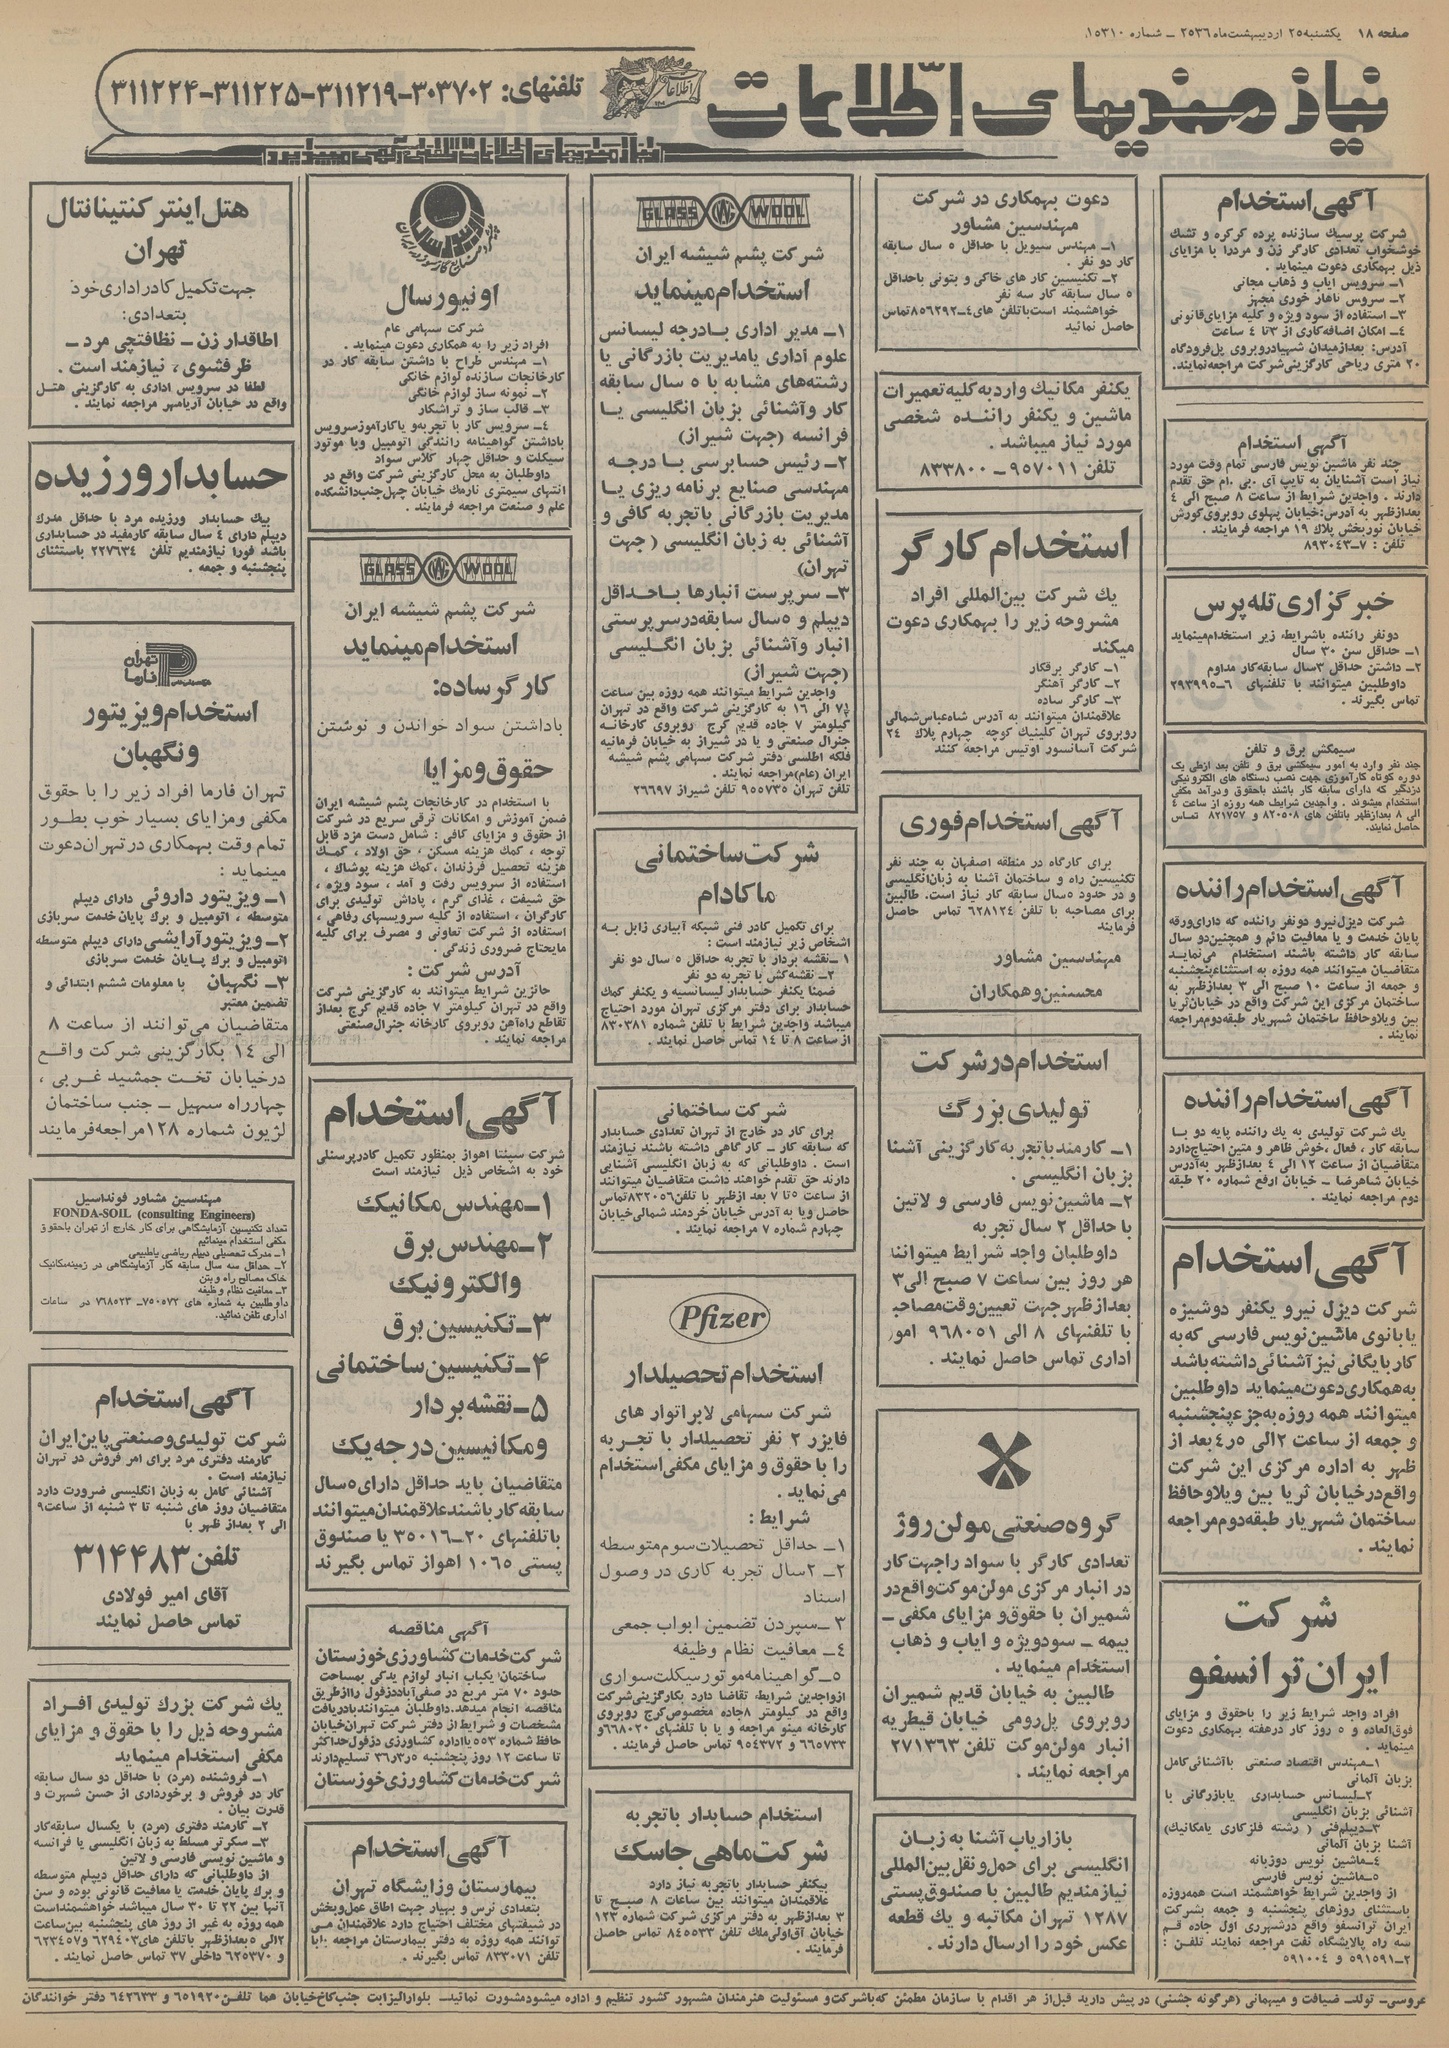 صفحه ۱۸ یکشنبه ۲۵ اردیبهشت ماه ۲۵۳۶ ـ شماره ۱۵۳۱۰
نیازمندیهای اطلاعات
تلفنهای: ۳۰۳۷۰۲-۳۱۱۲۱۹-۳۱۱۲۲۵-۳۱۱۲۲۴
نیازمندیهای اطلاعات تلفنی آگهی میپذیرد
آگهی استخدام
شرکت پرسیك سازنده پرده کرکره و تشك
خوشخواب تعدادی کارگر زن و مرد را با مزایای
ذیل بهمکاری دعوت مینماید .
۱ـ سرویس ایاب و ذهاب مجانی
۲ـ سرویس ناهار خوری مجهز
۳ـ استفاده از سود ویژه و کلیه مزایای قانونی
۴ـ امکان اضافه کاری از ۳ تا ٤ ساعت
آدرس: بعد از میدان شهیاد روبروی پل فرودگاه
۲۰ متری ریاحی کارگزینی شرکت مراجعه نمایند.
آگهی استخدام
چند نفر ماشین نویس فارسی تمام وقت مورد
نیاز است آشنایان به تایپ آی .بی .ام حق تقدم
دارند . واجدین شرایط از ساعت ۸ صبح الی ٤
بعدازظهر به آدرس: خیابان پهلوی روبروی کورش
خیابان نوربخش پلاك ۱۹ مراجعه فرمایند .
تلفن : ۷-۸۹۳۰٤۳
خبر گزاری تله پرس
دو نفر راننده با شرایط، زیر استخدام مینماید
۱ـ حداقل سن ۳۰ سال
۲ـ داشتن حداقل ۳ سال سابقه کار مداوم
داوطلبین میتوانند با تلفنهای ٦-۲۹۳۹۹۵
تماس بگیرند .
سیمکش برق و تلفن
چند نفر وارد به امور سیمکشی برق و تلفن بعد از طی یك
دوره کوتاه کارآموزی جهت نصب دستگاه های الکترونیکی
دزدگیر که دارای سابقه کار باشند با حقوق و درآمد مکفی
استخدام میشوند . واجدین شرایط همه روزه از ساعت ٤
الی ۸ بعدازظهر با تلفن های ۸۲۰۵۰۸ و ۸۲۱۷۵۷ تماس
حاصل نمایند.
آگهی استخدام راننده
شرکت دیزل نیرو دو نفر راننده که دارای ورقه
پایان خدمت و یا معافیت دائم و همچنین دو سال
سابقه کار داشته باشند استخدام می نماید
متقاضیان میتوانند همه روزه به استثناء پنجشنبه
و جمعه از ساعت ۱۰ صبح الی ۳ بعدازظهر به
ساختمان مرکزی این شرکت واقع در خیابان ثریا
بین ویلا و حافظ ساختمان شهریار طبقه دوم مراجعه
نمایند .
آگهی استخدام راننده
یك شرکت تولیدی به یك راننده پایه دو با
سابقه کار ، فعال ، خوش ظاهر و متین احتیاج دارد
متقاضیان از ساعت ۱۲ الی ٤ بعدازظهر به آدرس
خیابان شاهرضا ـ خیابان ارفع شماره ۲۰ طبقه
دوم مراجعه نمایند .
آگهی استخدام
شرکت دیزل نیرو یکنفر دوشیزه
یا بانوی ماشین نویس فارسی که به
کار بایگانی نیز آشنائی داشته باشد
به همکاری دعوت مینماید داوطلبین
میتوانند همه روزه به جزء پنجشنبه
و جمعه از ساعت ۲ الی ٤ر۵ بعد از
ظهر به اداره مرکزی این شرکت
واقع در خیابان ثریا بین ویلا و حافظ
ساختمان شهریار طبقه دوم مراجعه
نمایند .
شرکت
ایران ترانسفو
افراد واجد شرایط زیر را با حقوق و مزایای
فوق العاده و ۵ روز کار در هفته بهمکاری دعوت
مینماید .
۱ـ مهندس اقتصاد صنعتی با آشنائی کامل
بزبان آلمانی
۲ـ لیسانس حسابداری یا بازرگانی با
آشنائی بزبان انگلیسی
۳ـ دیپلم فنی ( رشته فلزکاری یا مکانیك)
آشنا بزبان آلمانی
٤ـ ماشین نویس دو زبانه
۵ـ ماشین نویس فارسی
از واجدین شرایط خواهشمند است همه روزه
باستثنای روزهای پنجشنبه و جمعه بشرکت
ایران ترانسفو واقع در شهرری اول جاده قم
سه راه پالایشگاه نفت مراجعه نمایند تلفن :
۲-۵۹۱۵۹۱ و ۵۹۱۰۰٤
دعوت بهمکاری در شرکت
مهندسین مشاور
۱ـ مهندس سیویل با حداقل ۵ سال سابقه
کار دو نفر .
۲ـ تکنیسین کار های خاکی و بتونی با حداقل
۵ سال سابقه کار سه نفر
خواهشمند است با تلفن های ٤-۸۵٦۲۹۲ تماس
حاصل نمائید
یکنفر مکانیك وارد به کلیه تعمیرات
ماشین و یکنفر راننده شخصی
مورد نیاز میباشد .
تلفن ۹۵۷۰۱۱ ـ ۸۳۳۸۰۰
استخدام کارگر
یك شرکت بین المللی افراد
مشروحه زیر را بهمکاری دعوت
میکند
۱ـ کارگر برقکار
۲ـ کارگر آهنگر
۳ـ کارگر ساده
علاقمندان میتوانند به آدرس شاه عباس شمالی
روبروی تهران کلینیك کوچه چهارم پلاك ۲٤
شرکت آسانسور اوتیس مراجعه کنند
آگهی استخدام فوری
برای کارگاه در منطقه اصفهان به چند نفر
تکنیسین راه و ساختمان آشنا به زبان انگلیسی
و در حدود ۵ سال سابقه کار نیاز است. طالبین
برای مصاحبه با تلفن ٦۲۸۱۲٤ تماس حاصل
فرمایند
مهندسین مشاور
محسنین و همکاران
استخدام در شرکت
تولیدی بزرگ
۱ـ کارمند با تجربه کارگزینی آشنا
بزبان انگلیسی .
۲ـ ماشین نویس فارسی و لاتین
با حداقل ۲ سال تجربه
داوطلبان واجد شرایط میتوانند
هر روز بین ساعت ۷ صبح الی ۳
بعدازظهر جهت تعیین وقت مصاحبه
با تلفنهای ۸ الی ۹٦۸۰۵۱ امور
اداری تماس حاصل نمایند .
گروه صنعتی مولن روژ
تعدادی کارگر با سواد را جهت کار
در انبار مرکزی مولن موکت واقع در
شمیران با حقوق و مزایای مکفی ـ
بیمه ـ سود ویژه و ایاب و ذهاب
استخدام مینماید .
طالبین به خیابان قدیم شمیران
روبروی پل رومی خیابان قیطریه
انبار مولن موکت تلفن ۲۷۱۳٦۳
مراجعه نمایند .
بازاریاب آشنا به زبان
انگلیسی برای حمل و نقل بین المللی
نیازمندیم طالبین با صندوق پستی
۱۲۸۷ تهران مکاتبه و یك قطعه
عکس خود را ارسال دارند .
GLASS WOOL
شرکت پشم شیشه ایران
استخدام مینماید
۱ـ مدیر اداری با درجه لیسانس
علوم اداری یا مدیریت بازرگانی یا
رشته های مشابه با ۵ سال سابقه
کار و آشنائی بزبان انگلیسی یا
فرانسه (جهت شیراز)
۲ـ رئیس حسابرسی با درجه
مهندسی صنایع برنامه ریزی یا
مدیریت بازرگانی با تجربه کافی و
آشنائی به زبان انگلیسی ( جهت
تهران)
۳ـ سرپرست انبارها با حداقل
دیپلم و ۵ سال سابقه در سرپرستی
انبار و آشنائی بزبان انگلیسی
(جهت شیراز)
واجدین شرایط میتوانند همه روزه بین ساعت
الی ۱٦ به کارگزینی شرکت واقع در تهران
کیلومتر ۷ جاده قدیم کرج روبروی کارخانه
جنرال صنعتی و یا در شیراز به خیابان فرمانیه
فلکه اطلسی دفتر شرکت سهامی پشم شیشه
ایران (عام) مراجعه نمایند .
تلفن تهران ۹۵۵۷۳۵ تلفن شیراز ۳٦٦۹۷
شرکت ساختمانی
ماکادام
برای تکمیل کادر فنی شبکه آبیاری زابل به
اشخاص زیر نیازمند است :
۱ـ نقشه بردار با تجربه حداقل ۵ سال دو نفر
۲ـ نقشه کش با تجربه دو نفر
ضمنا یکنفر حسابدار لیسانسیه و یکنفر کمك
حسابدار برای دفتر مرکزی تهران مورد احتیاج
میباشد واجدین شرایط با تلفن شماره ۸۳۰۳۸۱
از ساعت ۸ تا ۱٤ تماس حاصل نمایند .
شرکت ساختمانی
برای کار در خارج از تهران تعدادی حسابدار
که سابقه کار ـ کارگاهی داشته باشند نیازمند
است . داوطلبانی که به زبان انگلیسی آشنایی
دارند حق تقدم خواهند داشت متقاضیان میتوانند
از ساعت ۵ تا ۷ بعد از ظهر با تلفن ۸۳۲۰۵٦ تماس
حاصل و یا به آدرس خیابان خردمند شمالی خیابان
چهارم شماره ۷ مراجعه نمایند .
Pfizer
استخدام تحصیلدار
شرکت سهامی لابراتوار های
فایزر ۲ نفر تحصیلدار با تجربه
را با حقوق و مزایای مکفی استخدام
می نماید .
شرایط :
۱ـ حداقل تحصیلات سوم متوسطه
۲ـ ۲ سال تجربه کاری در وصول
اسناد
۳ ـ سپردن تضمین ابواب جمعی
٤ـ معافیت نظام وظیفه
۵ـ گواهینامه موتور سیکلت سواری
از واجدین شرایط، تقاضا دارد بکارگزینی شرکت
واقع در کیلومتر ۸ جاده مخصوص کرج روبروی
کارخانه مینو مراجعه و یا با تلفنهای ٦٦۸۰۲۰ و
٦٦۵۷۳۳ و ۹۵٤۳۷۲ تماس حاصل فرمایند .
استخدام حسابدار با تجربه
شرکت ماهی جاسك
بیکنفر حسابدار با تجربه نیاز دارد
علاقمندان میتوانند بین ساعات ۸ صبح تا
۳ بعدازظهر به دفتر مرکزی شرکت شماره ۱۲۳
خیابان آق اولی ملك تلفن ۸٤۵۵۳۳ تماس حاصل
فرمایند .
اونیورسال
شرکت سهامی عام
افراد زیر را به همکاری دعوت مینماید .
۱ـ مهندس طراح با داشتن سابقه کار در
کارخانجات سازنده لوازم خانگی
۲ـ نمونه ساز لوازم خانگی
۳ـ قالب ساز و تراشکار
٤ـ سرویس کار با تجربه و یا کارآموز سرویس
با داشتن گواهینامه رانندگی اتومبیل و یا موتور
سیکلت و حداقل چهار کلاس سواد
داوطلبان به محل کارگزینی شرکت واقع در
انتهای سیمتری نارمك خیابان چهل جنب دانشکده
علم و صنعت مراجعه فرمایند .
GLASS WOOL
شرکت پشم شیشه ایران
استخدام مینماید
کارگر ساده:
با داشتن سواد خواندن و نوشتن
حقوق و مزایا
با استخدام در کارخانجات پشم شیشه ایران
ضمن آموزش و امکانات ترقی سریع در شرکت
از حقوق و مزایای کافی : شامل دست مزد قابل
توجه ، کمك هزینه مسکن ، حق اولاد ، کمك
هزینه تحصیل فرزندان ، کمك هزینه پوشاك ،
استفاده از سرویس رفت و آمد ، سود ویژه ،
حق شیفت ، غذای گرم ، پاداش تولیدی برای
کارگران ، استفاده از کلیه سرویسهای رفاهی ،
استفاده از شرکت تعاونی و مصرف برای کلیه
مایحتاج ضروری زندگی .
آدرس شرکت :
حائزین شرایط میتوانند به کارگزینی شرکت
واقع در تهران کیلومتر ۷ جاده قدیم کرج بعد از
تقاطع راه آهن روبروی کارخانه جنرال صنعتی
مراجعه نمایند .
آگهی استخدام
شرکت سپنتا اهواز بمنظور تکمیل کادر پرسنلی
خود به اشخاص ذیل نیازمند است
۱ـ مهندس مکانیك
۲ـ مهندس برق
والکترونیك
۳ـ تکنیسین برق
۴ـ تکنیسین ساختمانی
۵ـ نقشه بردار
و مکانیسین درجه یك
متقاضیان باید حداقل دارای ۵ سال
سابقه کار باشند علاقمندان میتوانند
با تلفنهای ۲۰-۳۵۰۱٦ یا صندوق
پستی ۱۰٦۵ اهواز تماس بگیرند
آگهی مناقصه
شرکت خدمات کشاورزی خوزستان
ساختمان یکباب انبار لوازم یدکی بمساحت
حدود ۷۰ متر مربع در صفی آباد دزفول را از طریق
مناقصه انجام میدهد. داوطلبان میتوانند با دریافت
مشخصات و شرایط از دفتر شرکت تهران خیابان
حافظ شماره ۵۵۳ یا اداره کشاورزی دزفول حداکثر
تا ساعت ۱۲ روز پنجشنبه ۵ر۳ر۳٦ تسلیم دارند
شرکت خدمات کشاورزی خوزستان
آگهی استخدام
بیمارستان وزایشگاه تهران
بتعدادی نرس و بهیار جهت اطاق عمل و بخش
در شیفتهای مختلف احتیاج دارد علاقمندان می
توانند همه روزه به دفتر بیمارستان مراجعه یا با
تلفن ۸۳۳۰۷۱ تماس بگیرند .
هتل اینتر کنتیناننتال
تهران
جهت تکمیل کادر اداری خود
بتعدادی:
اطاقدار زن ـ نظافتچی مرد ـ
ظرفشوی ، نیازمند است .
لطفا در سرویس اداری به کارگزینی هتل
واقع در خیابان آریامهر مراجعه نمایند .
حسابدار ورزیده
بیك حسابدار ورزیده مرد با حداقل مدرك
دیپلم دارای ٤ سال سابقه کار مفید در حسابداری
باشد فورا نیازمندیم تلفن ۲۲۷٦۳٤ باستثنای
پنجشنبه و جمعه .
تهران فارما
استخدام ویزیتور
ونگهبان
تهران فارما افراد زیر را با حقوق
مکفی و مزایای بسیار خوب بطور
تمام وقت بهمکاری در تهران دعوت
مینماید :
۱ـ ویزیتور داروئی دارای دیپلم
متوسطه ، اتومبیل و برك پایان خدمت سربازی
۲ـ ویزیتور آرایشی دارای دیپلم متوسطه
اتومبیل و برك پایان خدمت سربازی
۳ـ نگهبان با معلومات ششم ابتدائی و
تضمین معتبر
متقاضیان می توانند از ساعت ۸
الی ۱٤ بکارگزینی شرکت واقع
در خیابان تخت جمشید غربی ،
چهارراه سهیل ـ جنب ساختمان
لژیون شماره ۱۲۸ مراجعه فرمایند
مهندسین مشاور فونداسیل
FONDA-SOIL (consulting Engineers)
تعداد تکنیسین آزمایشگاهی برای کار خارج از تهران با حقوق
مکفی استخدام مینمائیم
۱ـ مدرك تحصیلی دیپلم ریاضی یا طبیعی
۲ـ حداقل سه سال سابقه کار آزمایشگاهی در زمینه مکانیك
خاك مصالح راه و بتن
۳ـ معافیت نظام وظیفه
داوطلبین به شماره های ۷۵۰۵۷۲ـ ۷٦۸۵۲۳ در ساعات
اداری تلفن نمائید.
آگهی استخدام
شرکت تولیدی و صنعتی پاین ایران
کارمند دفتری مرد برای امر فروش در تهران
نیازمند است .
آشنائی کامل به زبان انگلیسی ضرورت دارد
متقاضیان روز های شنبه تا ۳ شنبه از ساعت ۹
الی ۲ بعداز ظهر با
تلفن ۳۱۴۴۸۳
آقای امیر فولادی
تماس حاصل نمایند
یك شرکت بزرك تولیدی افراد
مشروحه ذیل را با حقوق و مزایای
مکفی استخدام مینماید
۱ـ فروشنده (مرد) با حداقل دو سال سابقه
کار در فروش و برخورداری از حسن شهرت و
قدرت بیان .
۲ـ کارمند دفتری (مرد) با یکسال سابقه کار
۳ـ سکرتر مسلط به زبان انگلیسی یا فرانسه
و ماشین نویسی فارسی و لاتین
از داوطلبانی که دارای حداقل دیپلم متوسطه
و برك پایان خدمت یا معافیت قانونی بوده و سن
آنها بین ۲۲ تا ۳۰ سال میباشد خواهشمند است
همه روزه به غیر از روز های پنجشنبه بین ساعت
۲ الی ۵ بعدازظهر با تلفن های ٦۲۹٤۰۳ و ٦۲۳٤۵۷
و ٦۲۵۳۷۰ داخلی ۳۷ تماس حاصل نمایند .
عروسی ـ تولد ـ ضیافت و میهمانی (هرگونه جشنی) در پیش دارید قبل از هر اقدام با سازمان مطمئن که با شرکت و مسئولیت هنرمندان مشهور کشور تنظیم و اداره میشود مشورت نمائید ـ بلوار الیزابت جنب کاخ خیابان هما تلفن ٦۵۱۹۲۰ و ٦٤۲٦۳۳ دفتر خوانندگان